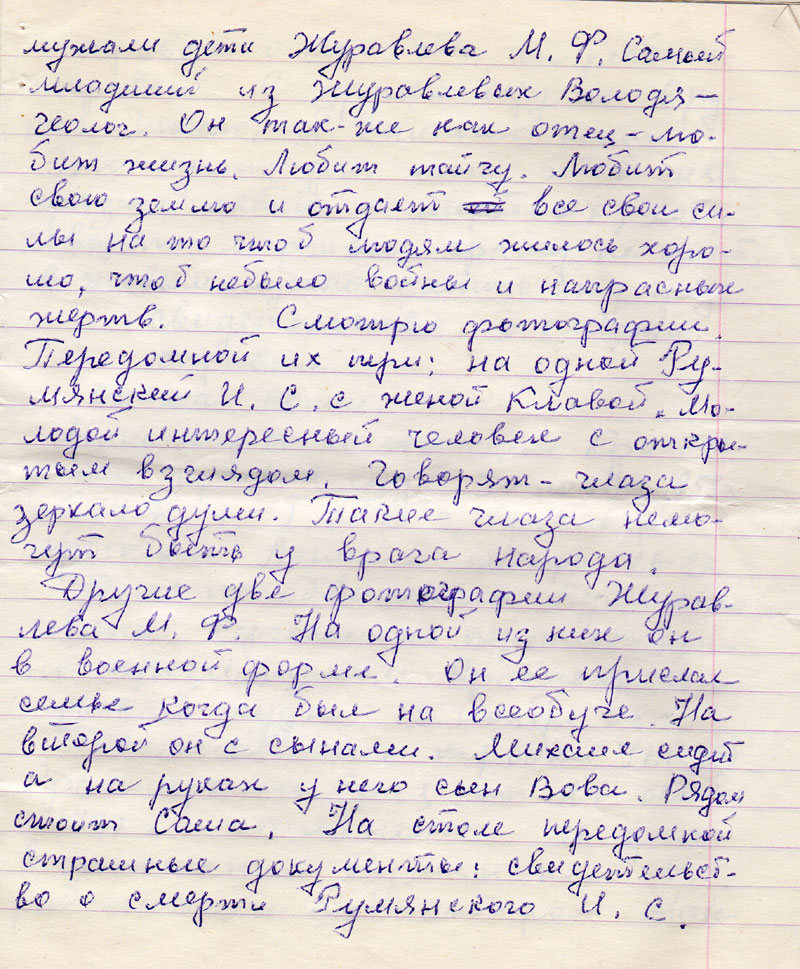 мужали дети Журавлева М. Ф. Самый
младший из Журавлевых Володя –
геолог. Он так-же как отец – лю-
бит жизнь. Любит тайгу. Любит
свою землю и отдает все свои си-
лы на то чтоб людям жилось хоро-
шо, чтоб небыло войны и напрасных
жертв. Смотрю фотографии.
Передомной их три: на одной Ру-
мянский И. С. с женой Клавой. Мо-
лодой интересный человек с откры-
тым взглядом. Говорят – глаза
зеркало души. Такие глаза немо-
гут быть у врага народа.
Другие две фотографии Журав-
лева М. Ф. На одной из них он
в военной форме. Он ее прислал
семье когда был на всеобуче. На
второй он с сынами. Михаил сидит
а на руках у него сын Вова. Рядом
стоит Саша. На столе передомной
страшные документы: свидетельст-
во о смерти Румянского И. С.